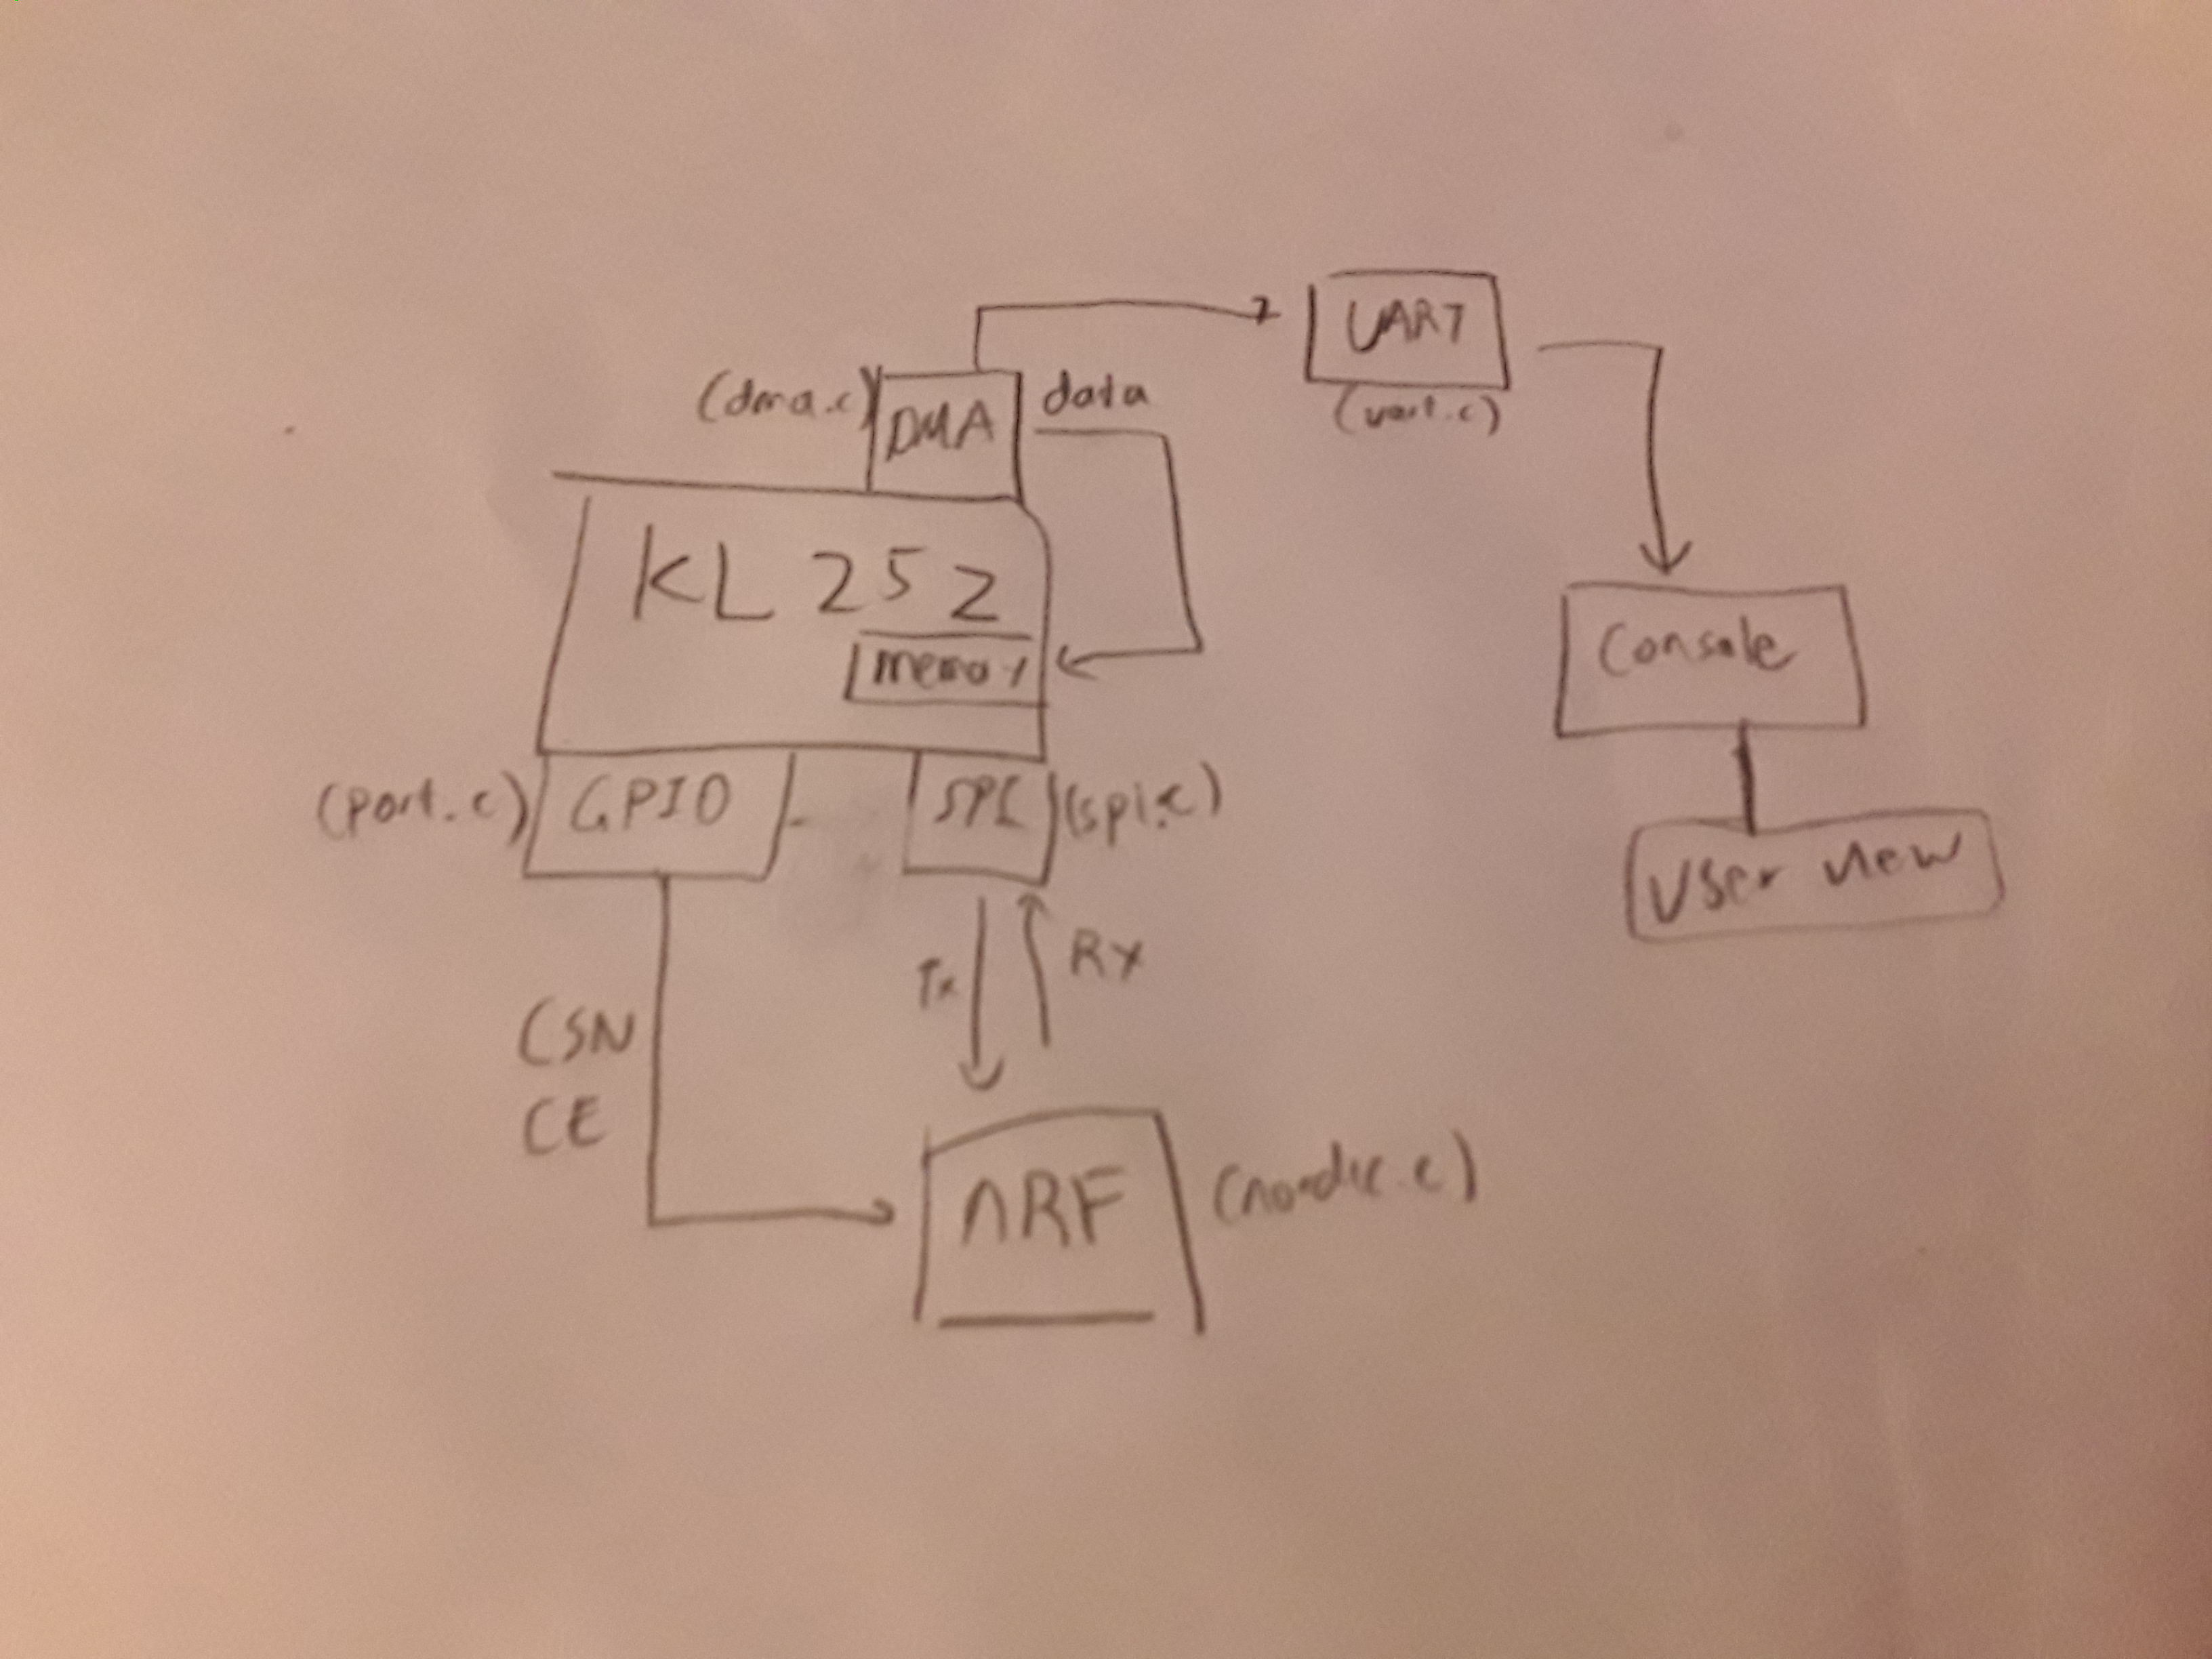 UART
(uart.c)
(dma.c)
DMA
data
KL25Z
memory
Console
User view
(port.c)
GPIO
SPI
(spi.c)
Tx
Rx
CSN
CE
nRF
(nordic.c)